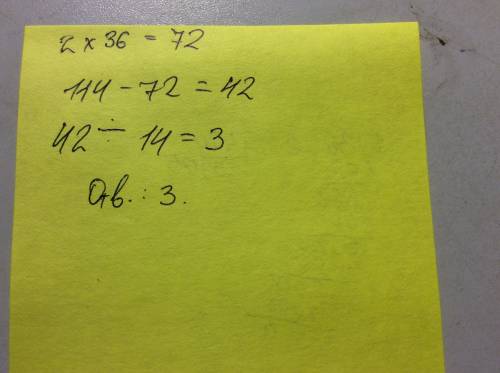 2 × 36 = 72
114 - 72 = 42
42 ÷ 14 = 3
Отв.: 3.